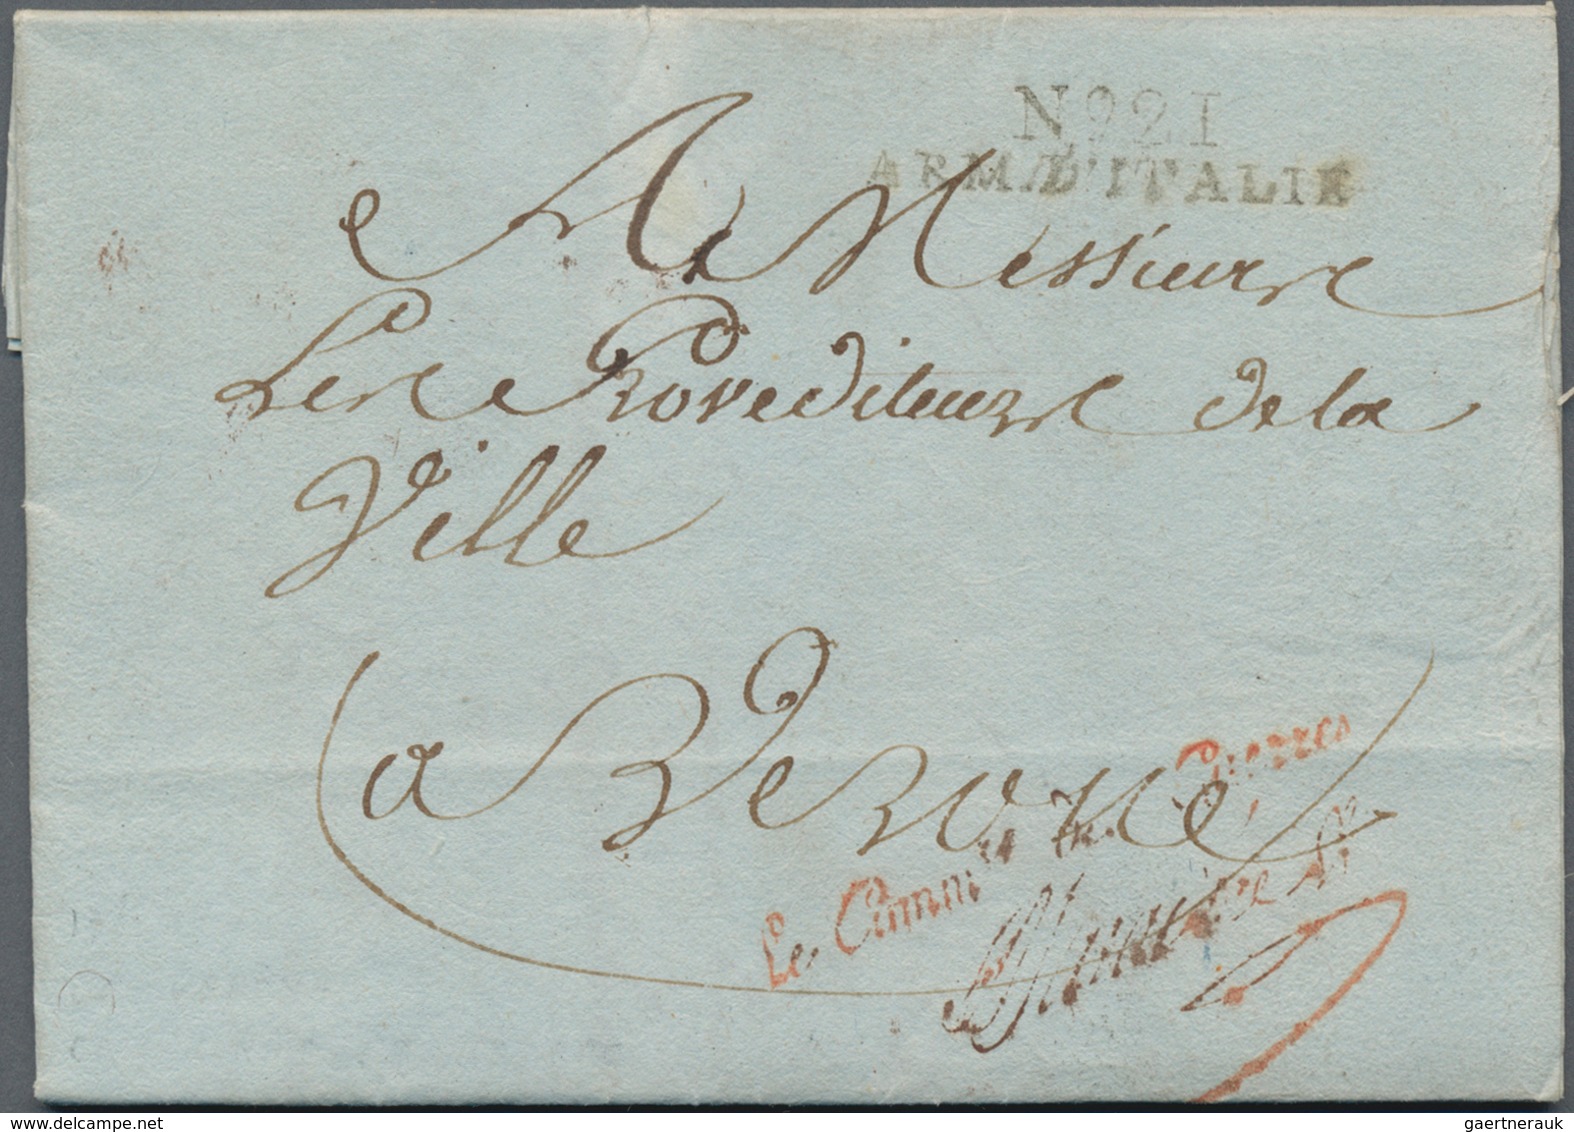 No 21
ARM. D'ITALIE
A Messieurs
Les Provediteurs de la
Ville
a Verone
Le Commis re des Guerres
gaertnerauk